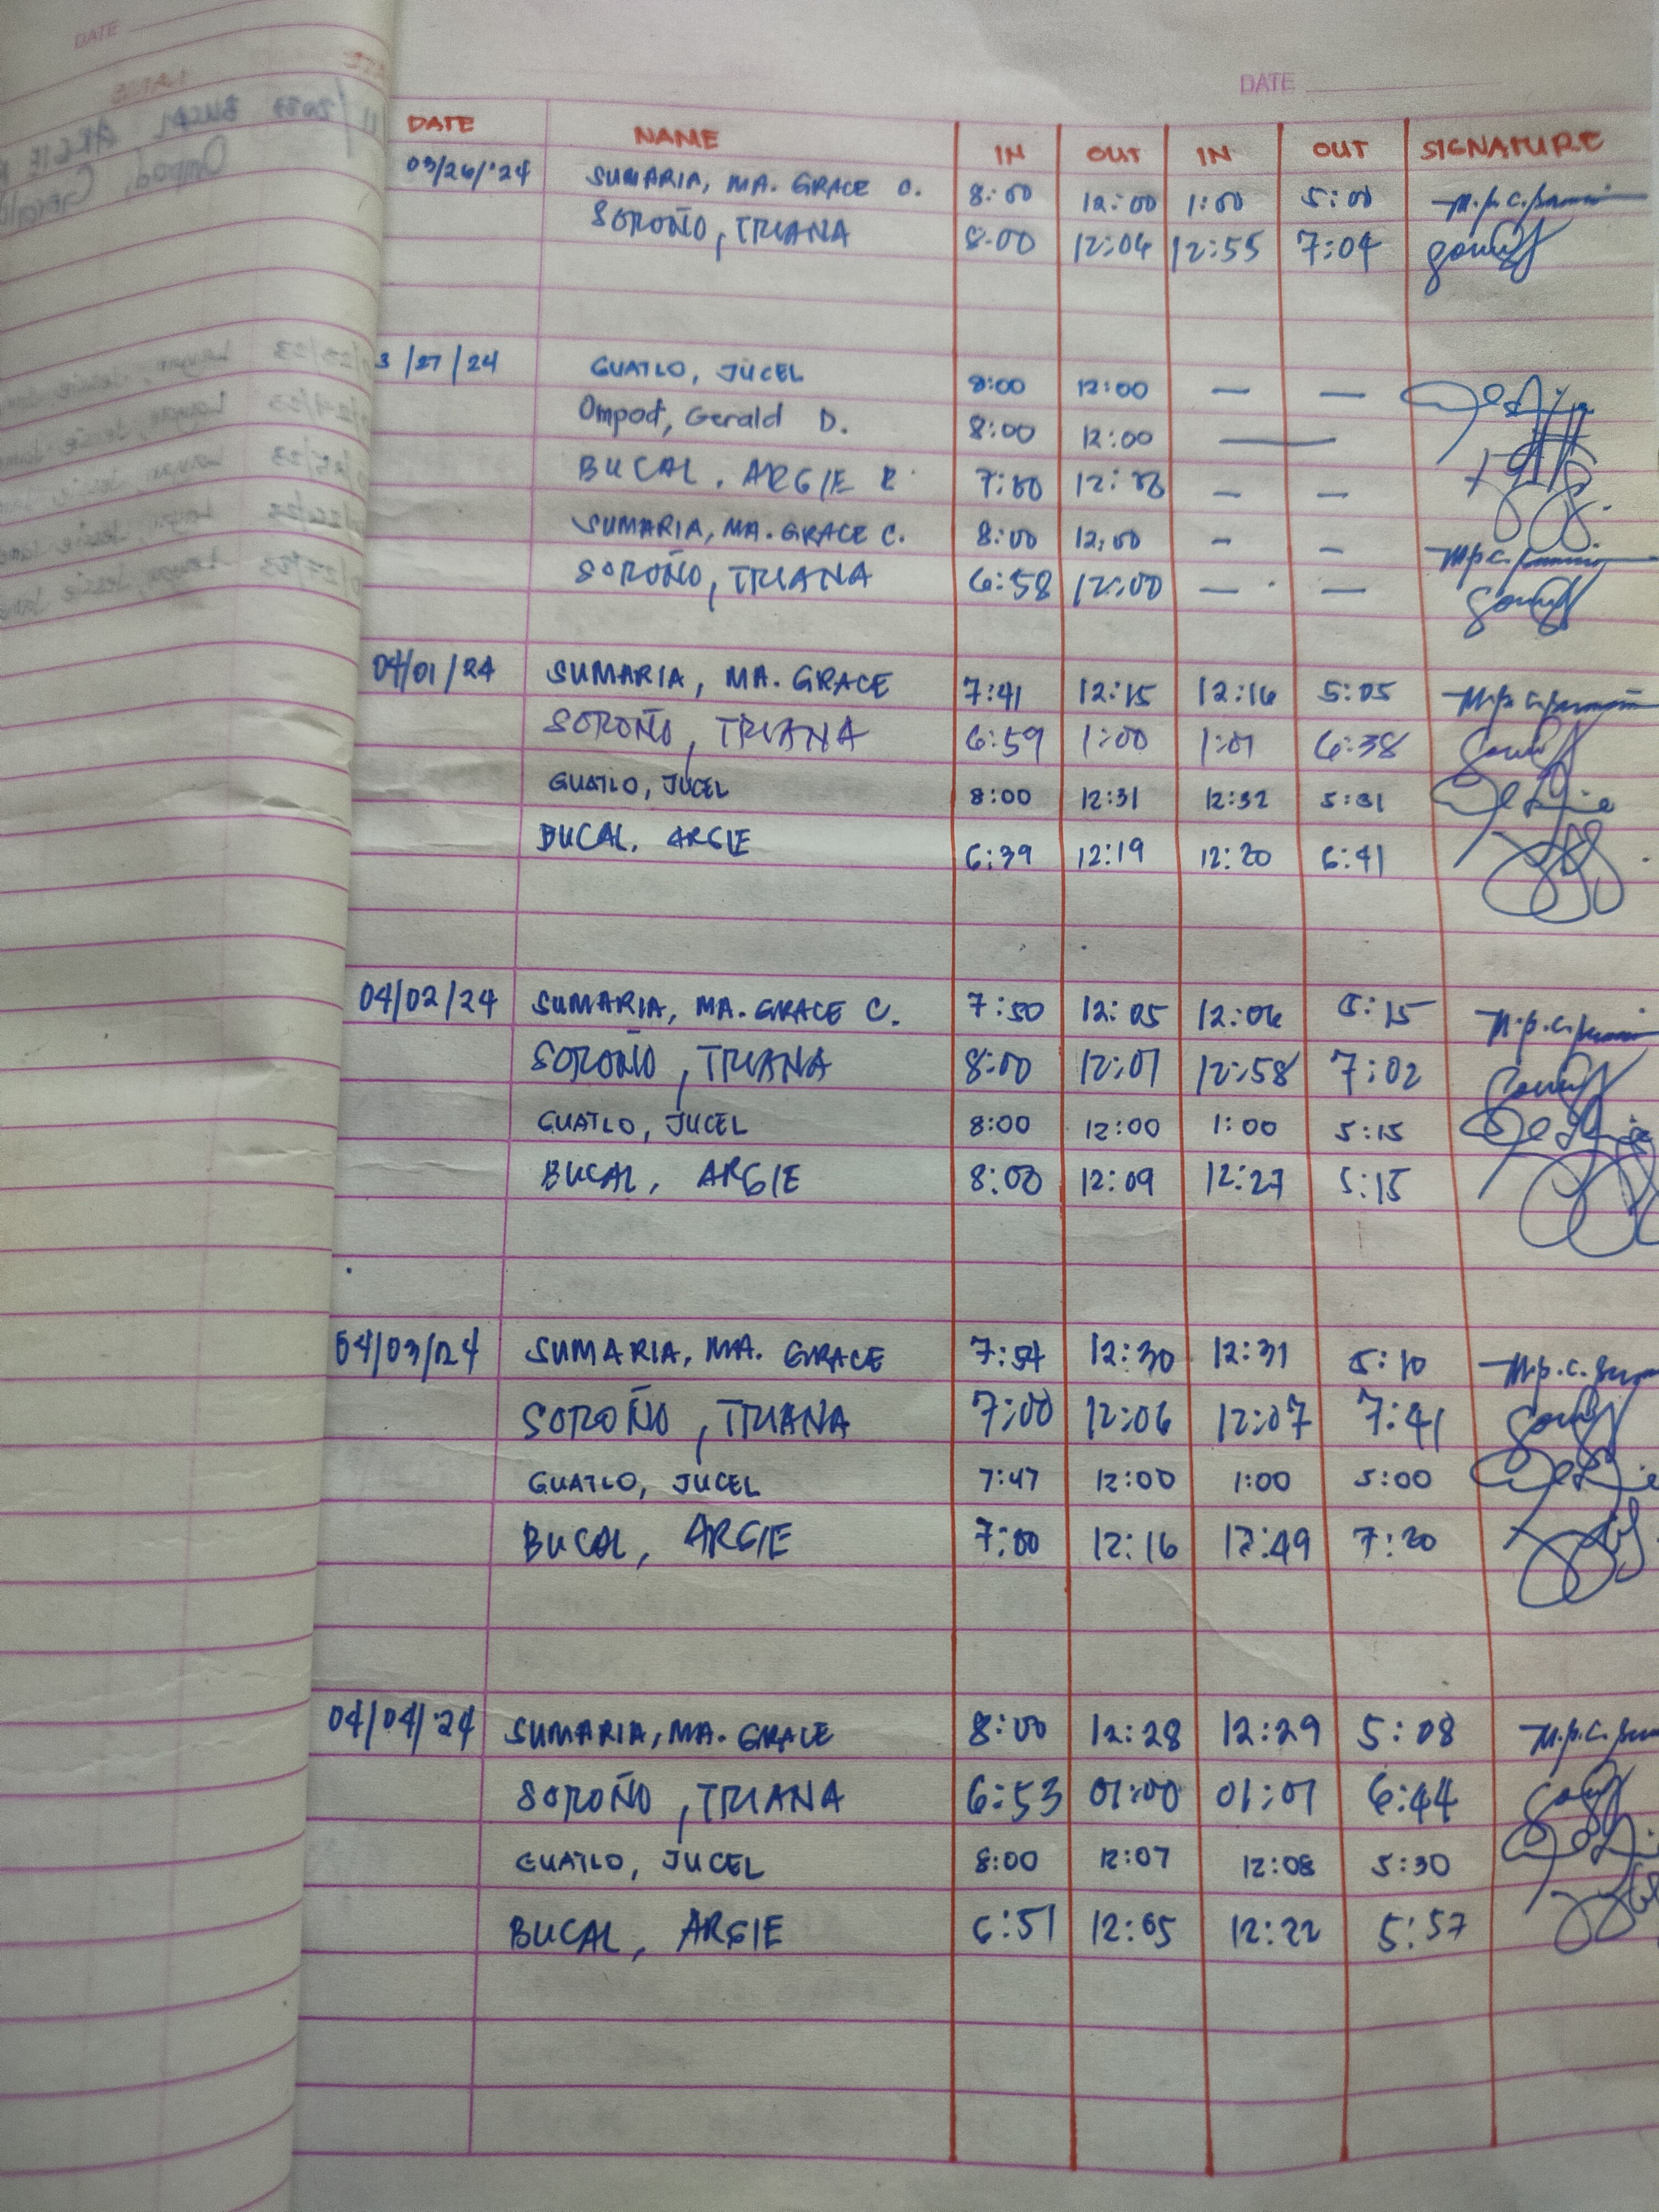 DATE
DATE
DATE NAME IN OUT IN OUT SIGNATURE
03/26/'24 SUMARIA, MA. GRACE C. 8:00 12:00 1:00 5:00
SOROÑO, TRIANA 8:00 12:04 12:55 7:04
3/27/24 GUATLO, JUCEL 8:00 12:00 — —
Ompod, Gerald D. 8:00 12:00 —
BUCAL, ARGIE R. 7:00 — —
SUMARIA, MA. GRACE C. 8:00 12:00 - -
SOROÑO, TRIANA 6:58 12:00 — —
04/01/24 SUMARIA, MA. GRACE 7:41 12:15 12:16 5:05
SOROÑO, TRIANA 6:59 1:00 1:01 6:38
GUATLO, JUCEL 8:00 12:31 12:32 5:31
BUCAL, ARGIE 6:39 12:19 12:20 6:41
04/02/24 SUMARIA, MA. GRACE C. 7:50 12:05 12:06 5:15
SOROÑO, TRIANA 8:00 12:01 12:58 7:02
GUATLO, JUCEL 8:00 12:00 1:00 5:15
BUCAL, ARGIE 8:00 12:09 12:27 5:15
04/03/24 SUMARIA, MA. GRACE 7:54 12:30 12:31 5:10
SOROÑO, TRIANA 7:00 12:06 12:07 7:41
GUATLO, JUCEL 7:47 12:00 1:00 5:00
BUCAL, ARGIE 7:00 12:16 12:49 7:20
04/04/'24 SUMARIA, MA. GRACE 8:00 12:28 12:29 5:08
SOROÑO, TRIANA 6:53 01:00 01:01 6:44
GUATLO, JUCEL 8:00 12:07 12:08 5:30
BUCAL, ARGIE 6:51 12:05 12:22 5:57